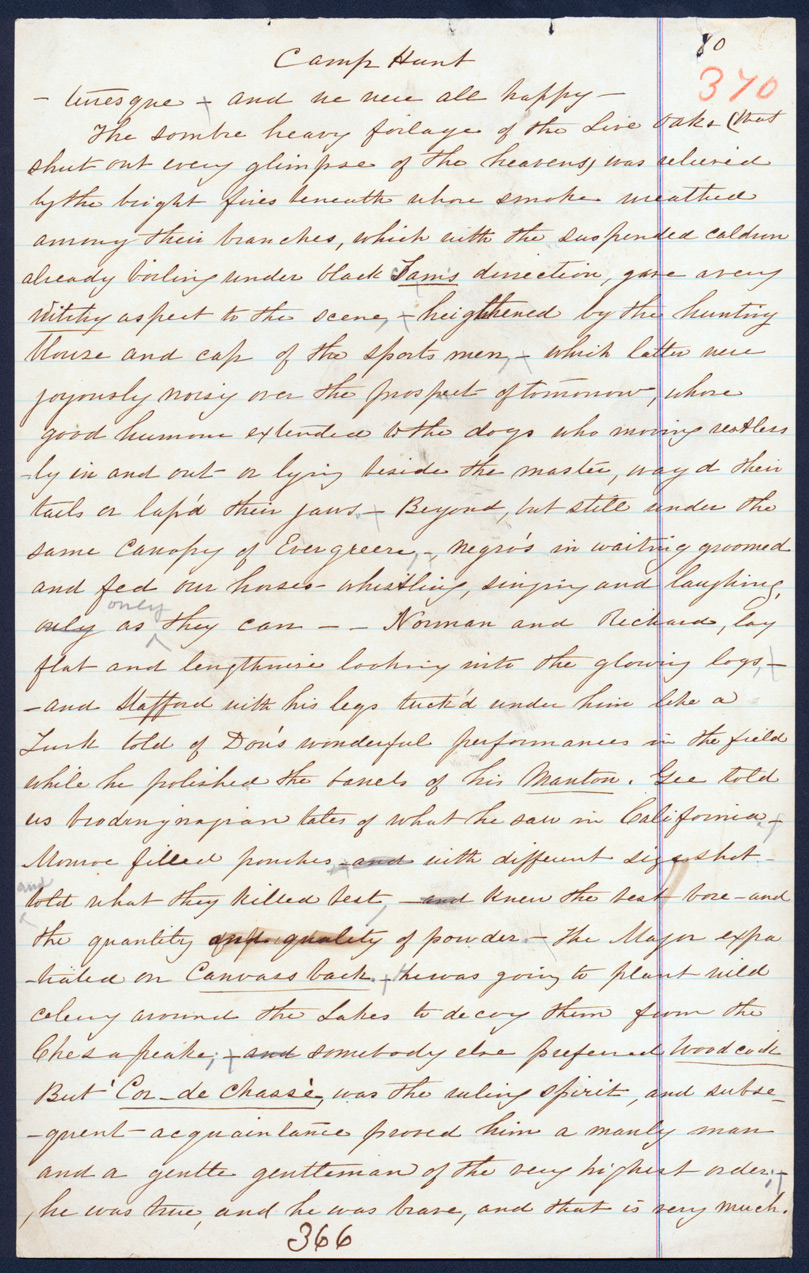 80
Camp Hunt
370
- turesque - and we were all happy -
The sombre heavy foilage of the Live Oaks (that
shut out every glimpse of the heavens) was relieved
by the bright fires beneath whose smoke wreathed
among their branches, which with the suspended caldron
already boiling under black Sam's direction, gave a very
witchy aspect to the scene, - heightened by the hunting
blouse and cap of the sportsmen, - which latter were
joyously noisy over the prospect of tomorrow, whose
good humour extended to the dogs who moving restless
-ly in and out - or lying beside the master, wag'd their
tails or lap'd their jaws - Beyond, but still under the
same Canopy of Evergreen, - negro's in waiting groomed
and fed our horses - whistling, singing and laughing,
only
only as they can - - Norman and Richard, lay
flat and lengthwise looking into the glowing logs, -
- and Stafford with his legs tuck'd under him like a
Turk told of Don's wonderful performances in the field
while he polished the barrels of his Manton. Gee told
us brodnynagian tales of what he saw in California -
Monroe filled pouches - and with different size shot -
and
told what they killed best, - and knew the best bore - and
the quantity and quality of powder. - The Major expa
-tiated on Canvass back. - he was going to plant wild
celery around the Lakes to decoy them from the
Chesapeake; - and somebody else preferred Woodcock
But 'Cor-de Chassé, was the ruling spirit, and subse-
-quent - acquaintance proved him a manly man
and a gentle gentleman of the very highest order; -
, he was true, and he was brave, and that is very much.
366